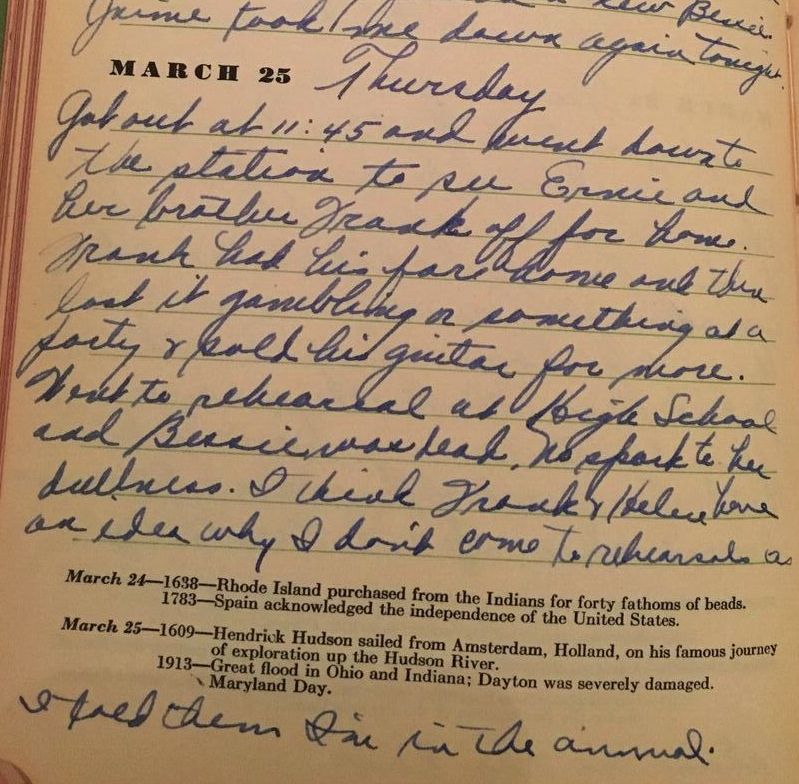 a new Bessie.
took me down again tonight.
MARCH 25 Thursday
Got out at 11:45 and went down to
the station to see Ernie and
her brother Frank off for home.
Frank had his fare home and then
lost it gambling or something at a
party & sold his guitar for more.
Went to rehearsal at High School
and Bessie was dead, no spark to her
dullness. I think Frank & Helen have
an idea why I don't come to rehearsals as
March 24—1638—Rhode Island purchased from the Indians for forty fathoms of beads.
1783—Spain acknowledged the independence of the United States.
March 25—1609—Hendrick Hudson sailed from Amsterdam, Holland, on his famous journey
of exploration up the Hudson River.
1913—Great flood in Ohio and Indiana; Dayton was severely damaged.
Maryland Day.
I told them I'm in the annual.